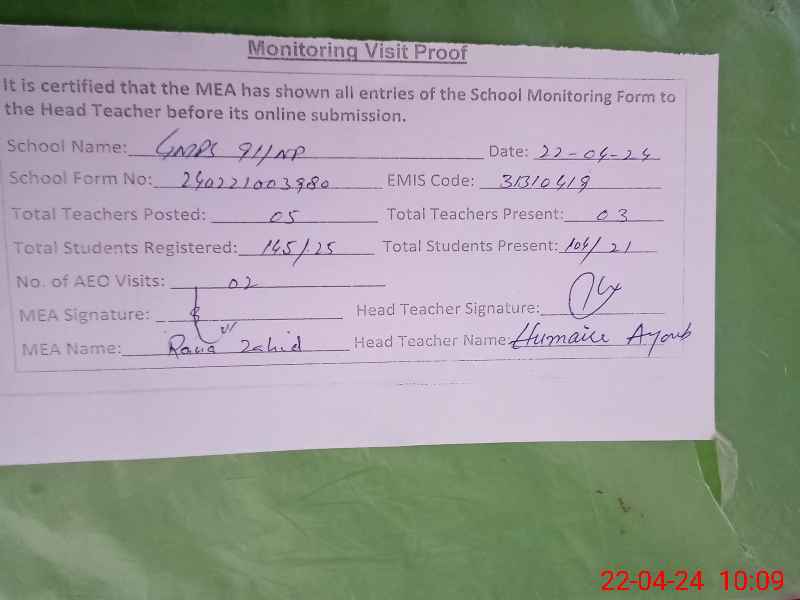 Monitoring Visit Proof
It is certified that the MEA has shown all entries of the School Monitoring Form to
the Head Teacher before its online submission.
School Name: GMPS 91/NP Date: 22-04-24
School Form No: 240221003980 EMIS Code: 31310419
Total Teachers Posted: 05 Total Teachers Present: 03
Total Students Registered: 145/25 Total Students Present: 104/21
No. of AEO Visits: 02
MEA Signature: Head Teacher Signature:
MEA Name: Rana Zahid Head Teacher Name: Humaira Ayoub
22-04-24 10:09